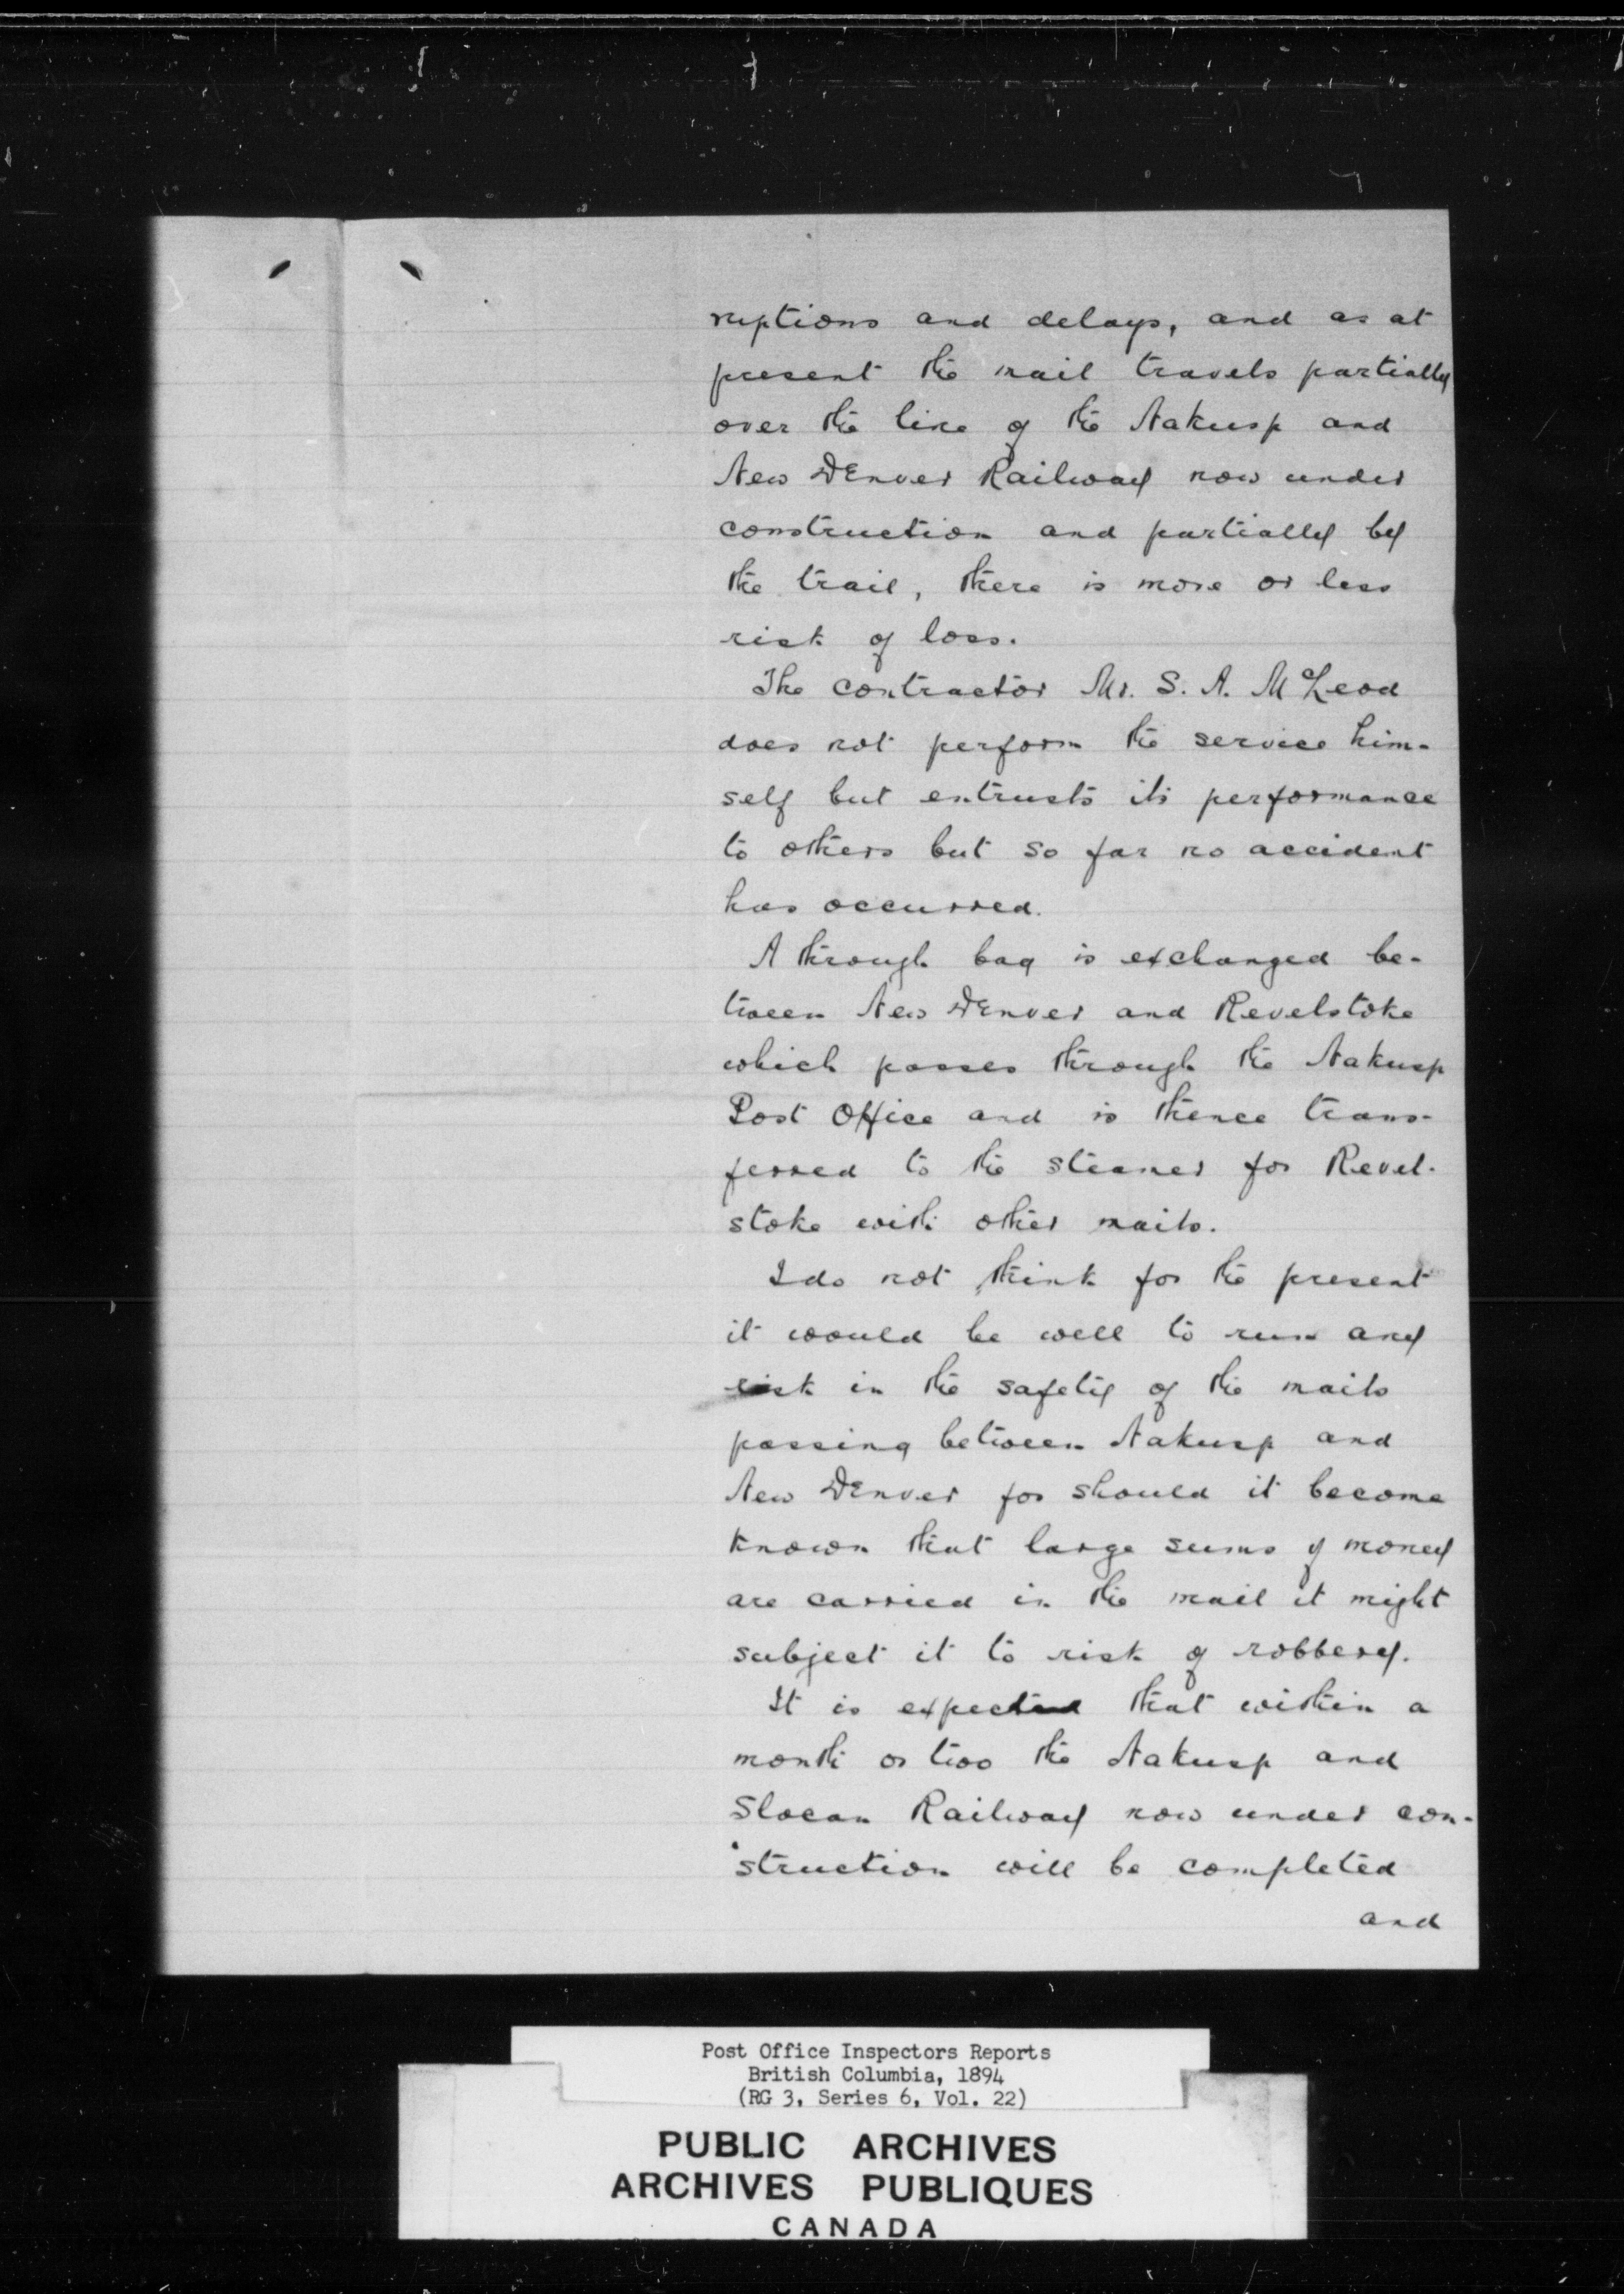 ruptions and delays, and as at
present the mail travels partially
over the line of the Nakusp and
New Denver Railway now under
construction and partially by
the trail, there is more or less
risk of loss.
The contractor Mr. S. A. McLeod
does not perform the service him-
self but entrusts its performance
to others but so far no accident
has occurred.
A through bag is exchanged be-
tween New Denver and Revelstoke
which passes through the Nakusp
Post Office and is thence trans-
ferred to the steamer for Revel-
stoke with other mails.
I do not think for the present
it would be well to run any
risk in the safety of the mails
passing between Nakusp and
New Denver for should it become
known that large sums of money
are carried in the mail it might
subject it to risk of robbery.
It is expected that within a
month or two the Nakusp and
Slocan Railway now under con-
struction will be completed
and
Post Office Inspectors Reports
British Columbia, 1894
(RG 3, Series 6, Vol. 22)
PUBLIC ARCHIVES
ARCHIVES PUBLIQUES
CANADA